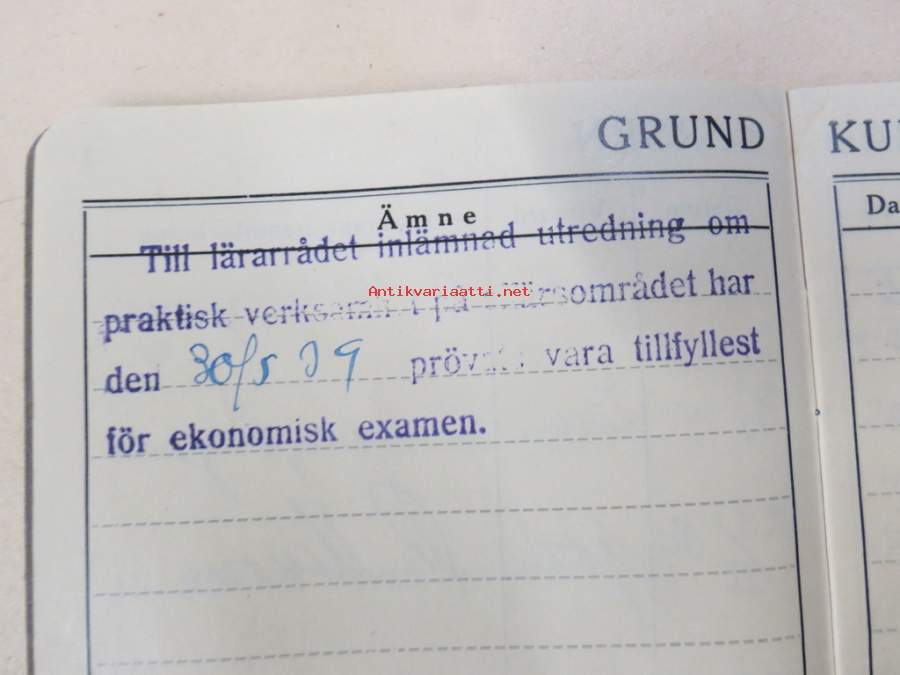 GRUND KU
Ämne Da
Till lärarrådet inlämnad utredning om
praktisk området har
Antikvariaatti.net
den 30/5 39 vara tillfyllest
för ekonomisk examen.